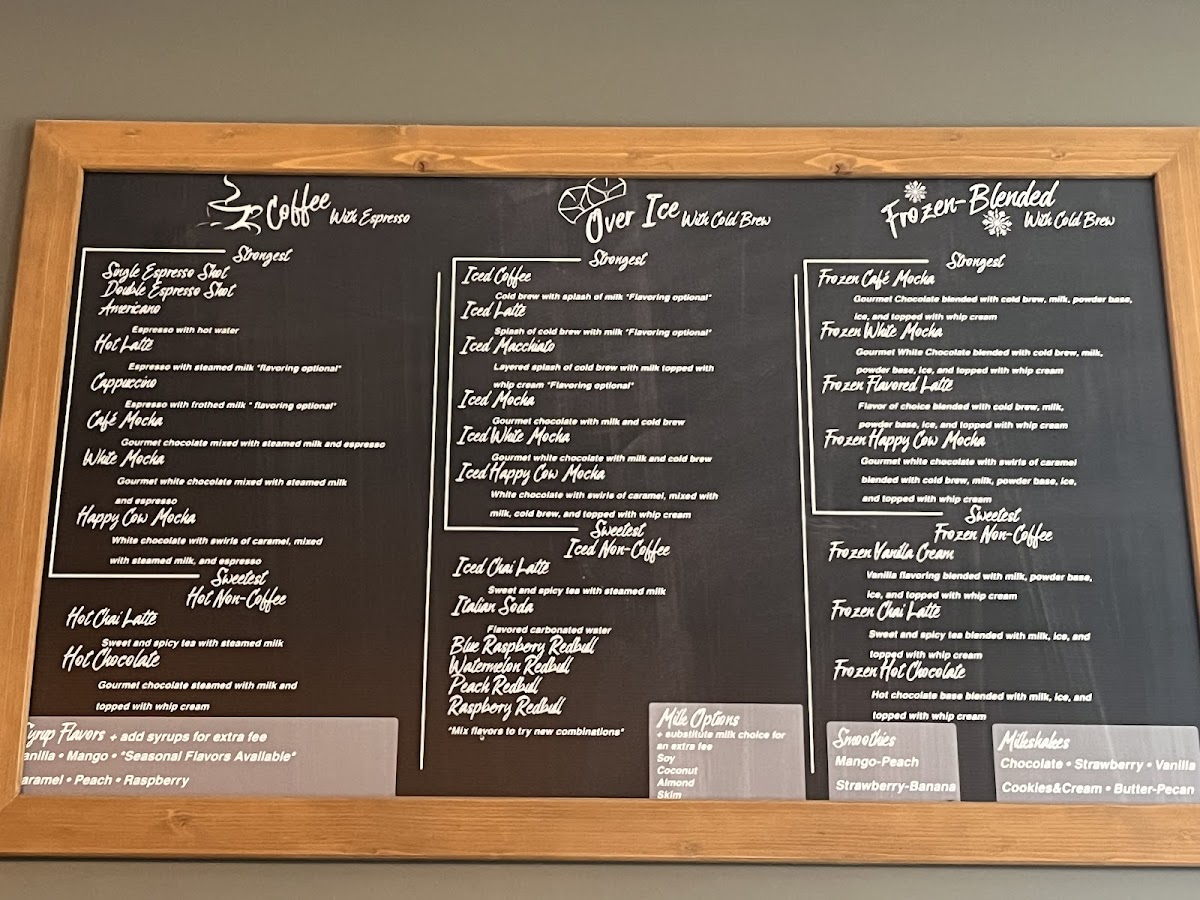 Coffee With Espresso
Strongest
Single Espresso Shot
Double Espresso Shot
Americano
Espresso with hot water
Hot Latte
Espresso with steamed milk *flavoring optional*
Cappuccino
Espresso with frothed milk * flavoring optional*
Café Mocha
Gourmet chocolate mixed with steamed milk and espresso
White Mocha
Gourmet white chocolate mixed with steamed milk
and espresso
Happy Cow Mocha
White chocolate with swirls of caramel, mixed
with steamed milk, and espresso
Sweetest
Hot Non-Coffee
Hot Chai Latte
Sweet and spicy tea with steamed milk
Hot Chocolate
Gourmet chocolate steamed with milk and
topped with whip cream
Syrup Flavors + add syrups for extra fee
anilla • Mango • *Seasonal Flavors Available*
aramel • Peach • Raspberry
Over Ice With Cold Brew
Strongest
Iced Coffee
Cold brew with splash of milk *Flavoring optional*
Iced Latte
Splash of cold brew with milk *Flavoring optional*
Iced Macchiato
Layered splash of cold brew with milk topped with
whip cream *Flavoring optional*
Iced Mocha
Gourmet chocolate with milk and cold brew
Iced White Mocha
Gourmet white chocolate with milk and cold brew
Iced Happy Cow Mocha
White chocolate with swirls of caramel, mixed with
milk, cold brew, and topped with whip cream
Sweetest
Iced Non-Coffee
Iced Chai Latte
Sweet and spicy tea with steamed milk
Italian Soda
Flavored carbonated water
Blue Raspbery Redbull
Watermelon Redbull
Peach Redbull
Raspbery Redbull
*Mix flavors to try new combinations*
Milk Options
+ substitute milk choice for
an extra fee
Soy
Coconut
Almond
Skim
Frozen-Blended With Cold Brew
Strongest
Frozen Café Mocha
Gourmet Chocolate blended with cold brew, milk, powder base,
ice, and topped with whip cream
Frozen White Mocha
Gourmet White Chocolate blended with cold brew, milk,
powder base, ice, and topped with whip cream
Frozen Flavored Latte
Flavor of choice blended with cold brew, milk,
powder base, ice, and topped with whip cream
Frozen Happy Cow Mocha
Gourmet white chocolate with swirls of caramel
blended with cold brew, milk, powder base, ice,
and topped with whip cream
Sweetest
Frozen Non-Coffee
Frozen Vanilla Cream
Vanilla flavoring blended with milk, powder base,
ice, and topped with whip cream
Frozen Chai Latte
Sweet and spicy tea blended with milk, ice, and
topped with whip cream
Frozen Hot Chocolate
Hot chocolate base blended with milk, ice, and
topped with whip cream
Smoothies
Mango-Peach
Strawberry-Banana
Milkshakes
Chocolate • Strawberry • Vanilla
Cookies&Cream • Butter-Pecan